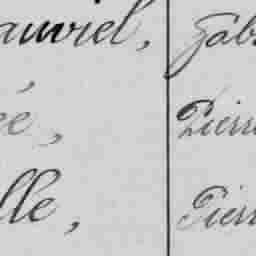 auviel, Gab
ée, Pierr
lle, Pierr